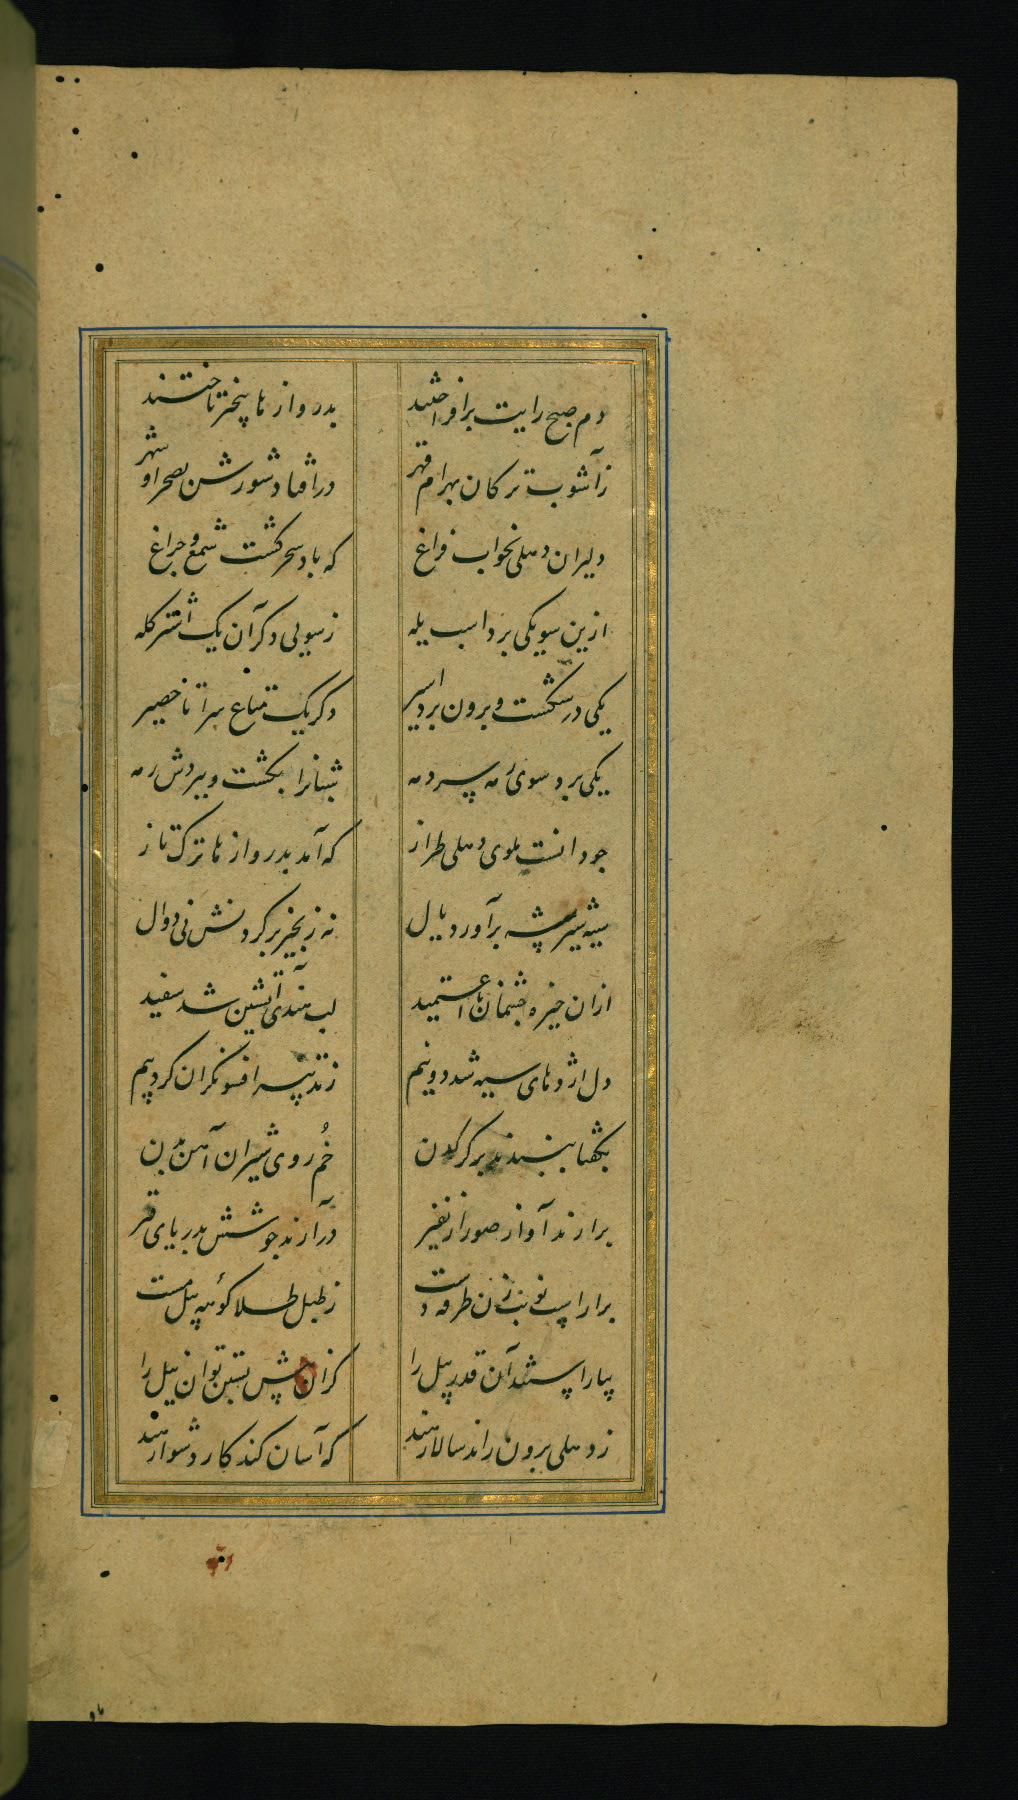 دم صبح رایت برافراختند
بدروازها پنجر تاختند
زآشوب ترکان بهرام قهر
درافتاد شورش بصحرا و شهر
دلیران دهلی بخواب فراغ
که باد سحر کشت شمع و چراغ
ازین سو یکی برد اسب یله
زسویی دکر آن یک اشتر کله
یکی در شکست و برون برد اسیر
دکر یک متاع سرا تا حصیر
یکی برد سوی رمه
شبانرا بکشت و ببردش رمه
چو دانست ملوی دهلی طراز
که آمد بدروازها ترک تاز
شیر بیشه برآورد یال
نه زنجیر بر کردنش نی دوال
ازان خیره چشمان نا اعتمید
لب هندی آتشین شد سفید
دل اژدهای سیه شد دو نیم
ز تدبیر افسونکران کرد بیم
بکفتا ببندند بر کرکدن
خم روی شیران آهن بدن
برارند آواز صور از نفیر
درآرند جوشش بدریای قیر
برارا نوبت زن طرفه دست
ز طبل طلا کوهه پیل مست
بیاراستند آن قدر پیل را
کزان پیش بستن توان نیل را
ز دهلی برون راند سالار هند
که آسان کند کار دشوار هند